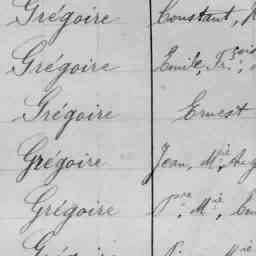 Grégoire Constant,
Grégoire Emile, Fr.çois,
Grégoire Ernest
Grégoire Jean, M.ie, Aug
Grégoire P.re, M.ie,
Grégoire